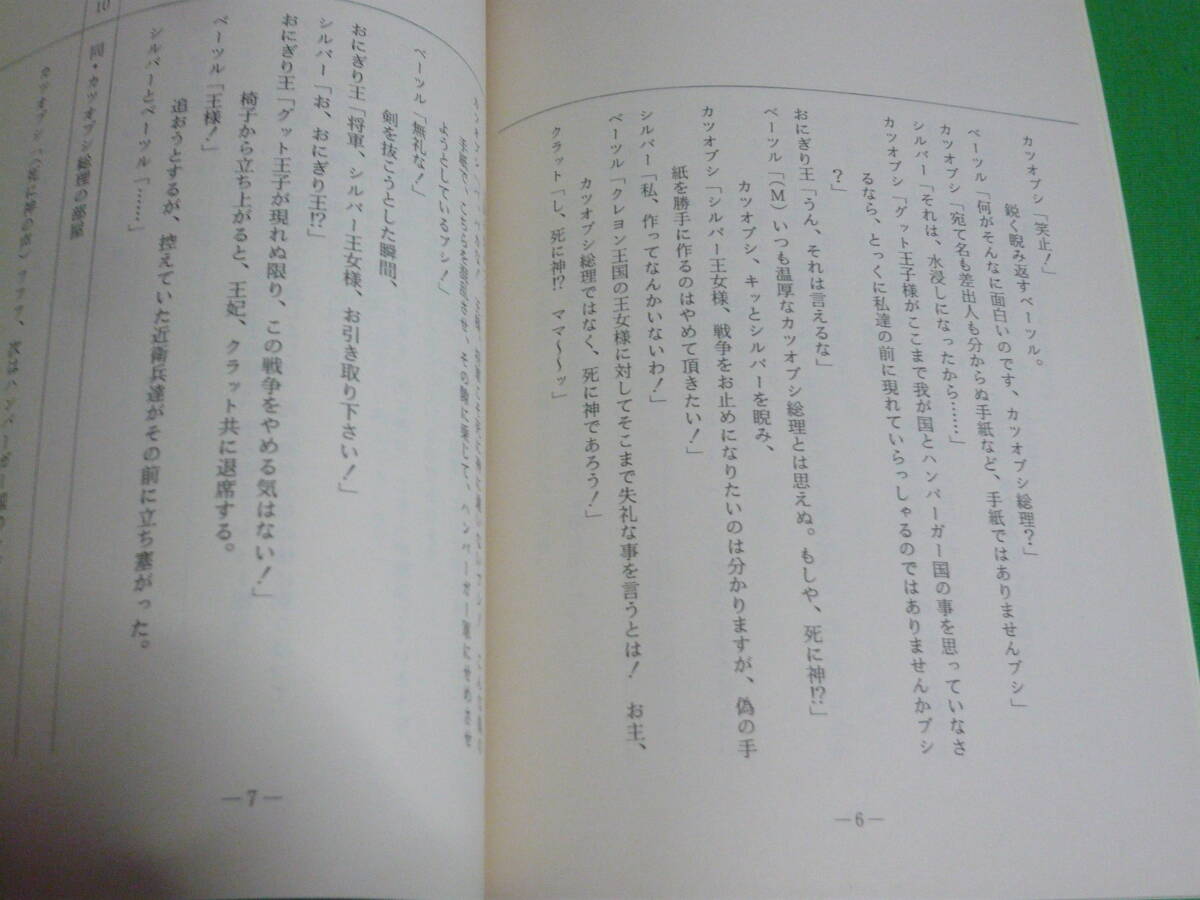 カツオブシ「笑止！」
鋭く睨み返すベーツル。
ベーツル「何がそんなに面白いのです、カツオブシ総理？」
カツオブシ「宛て名も差出人も分からぬ手紙など、手紙ではありませんブシ」
シルバー「それは、水浸しになったから……」
カツオブシ「グット王子様がここまで我が国とハンバーガー国の事を思っていなさ
るなら、とっくに私達の前に現れていらっしゃるのではありませんかブシ
？」
おにぎり王「うん、それは言えるな」
ベーツル「（Ｍ）いつも温厚なカツオブシ総理とは思えぬ。もしや、死に神!?」
カツオブシ、キッとシルバーを睨み、
カツオブシ「シルバー王女様、戦争をお止めになりたいのは分かりますが、偽の手
紙を勝手に作るのはやめて頂きたい！」
シルバー「私、作ってなんかいないわ！」
ベーツル「クレヨン王国の王女様に対してそこまで失礼な事を言うとは！　お主、
カツオブシ総理ではなく、死に神であろう！」
クラット「し、死に神!?　ママ〜〜ッ」
—6—
ようとしているブシ！」
ベーツル「無礼な！」
剣を抜こうとした瞬間、
おにぎり王「将軍、シルバー王女様、お引き取り下さい！」
シルバー「お、おにぎり王!?」
おにぎり王「グット王子が現れぬ限り、この戦争をやめる気はない！」
椅子から立ち上がると、王妃、クラット共に退席する。
ベーツル「王様！」
追おうとするが、控えていた近衛兵達がその前に立ち塞がった。
シルバーとベーツル「……」
10　同・カツオブシ総理の部屋
カツオブシ「（死に神の声）フフフ、次はハンバーガー
—7—